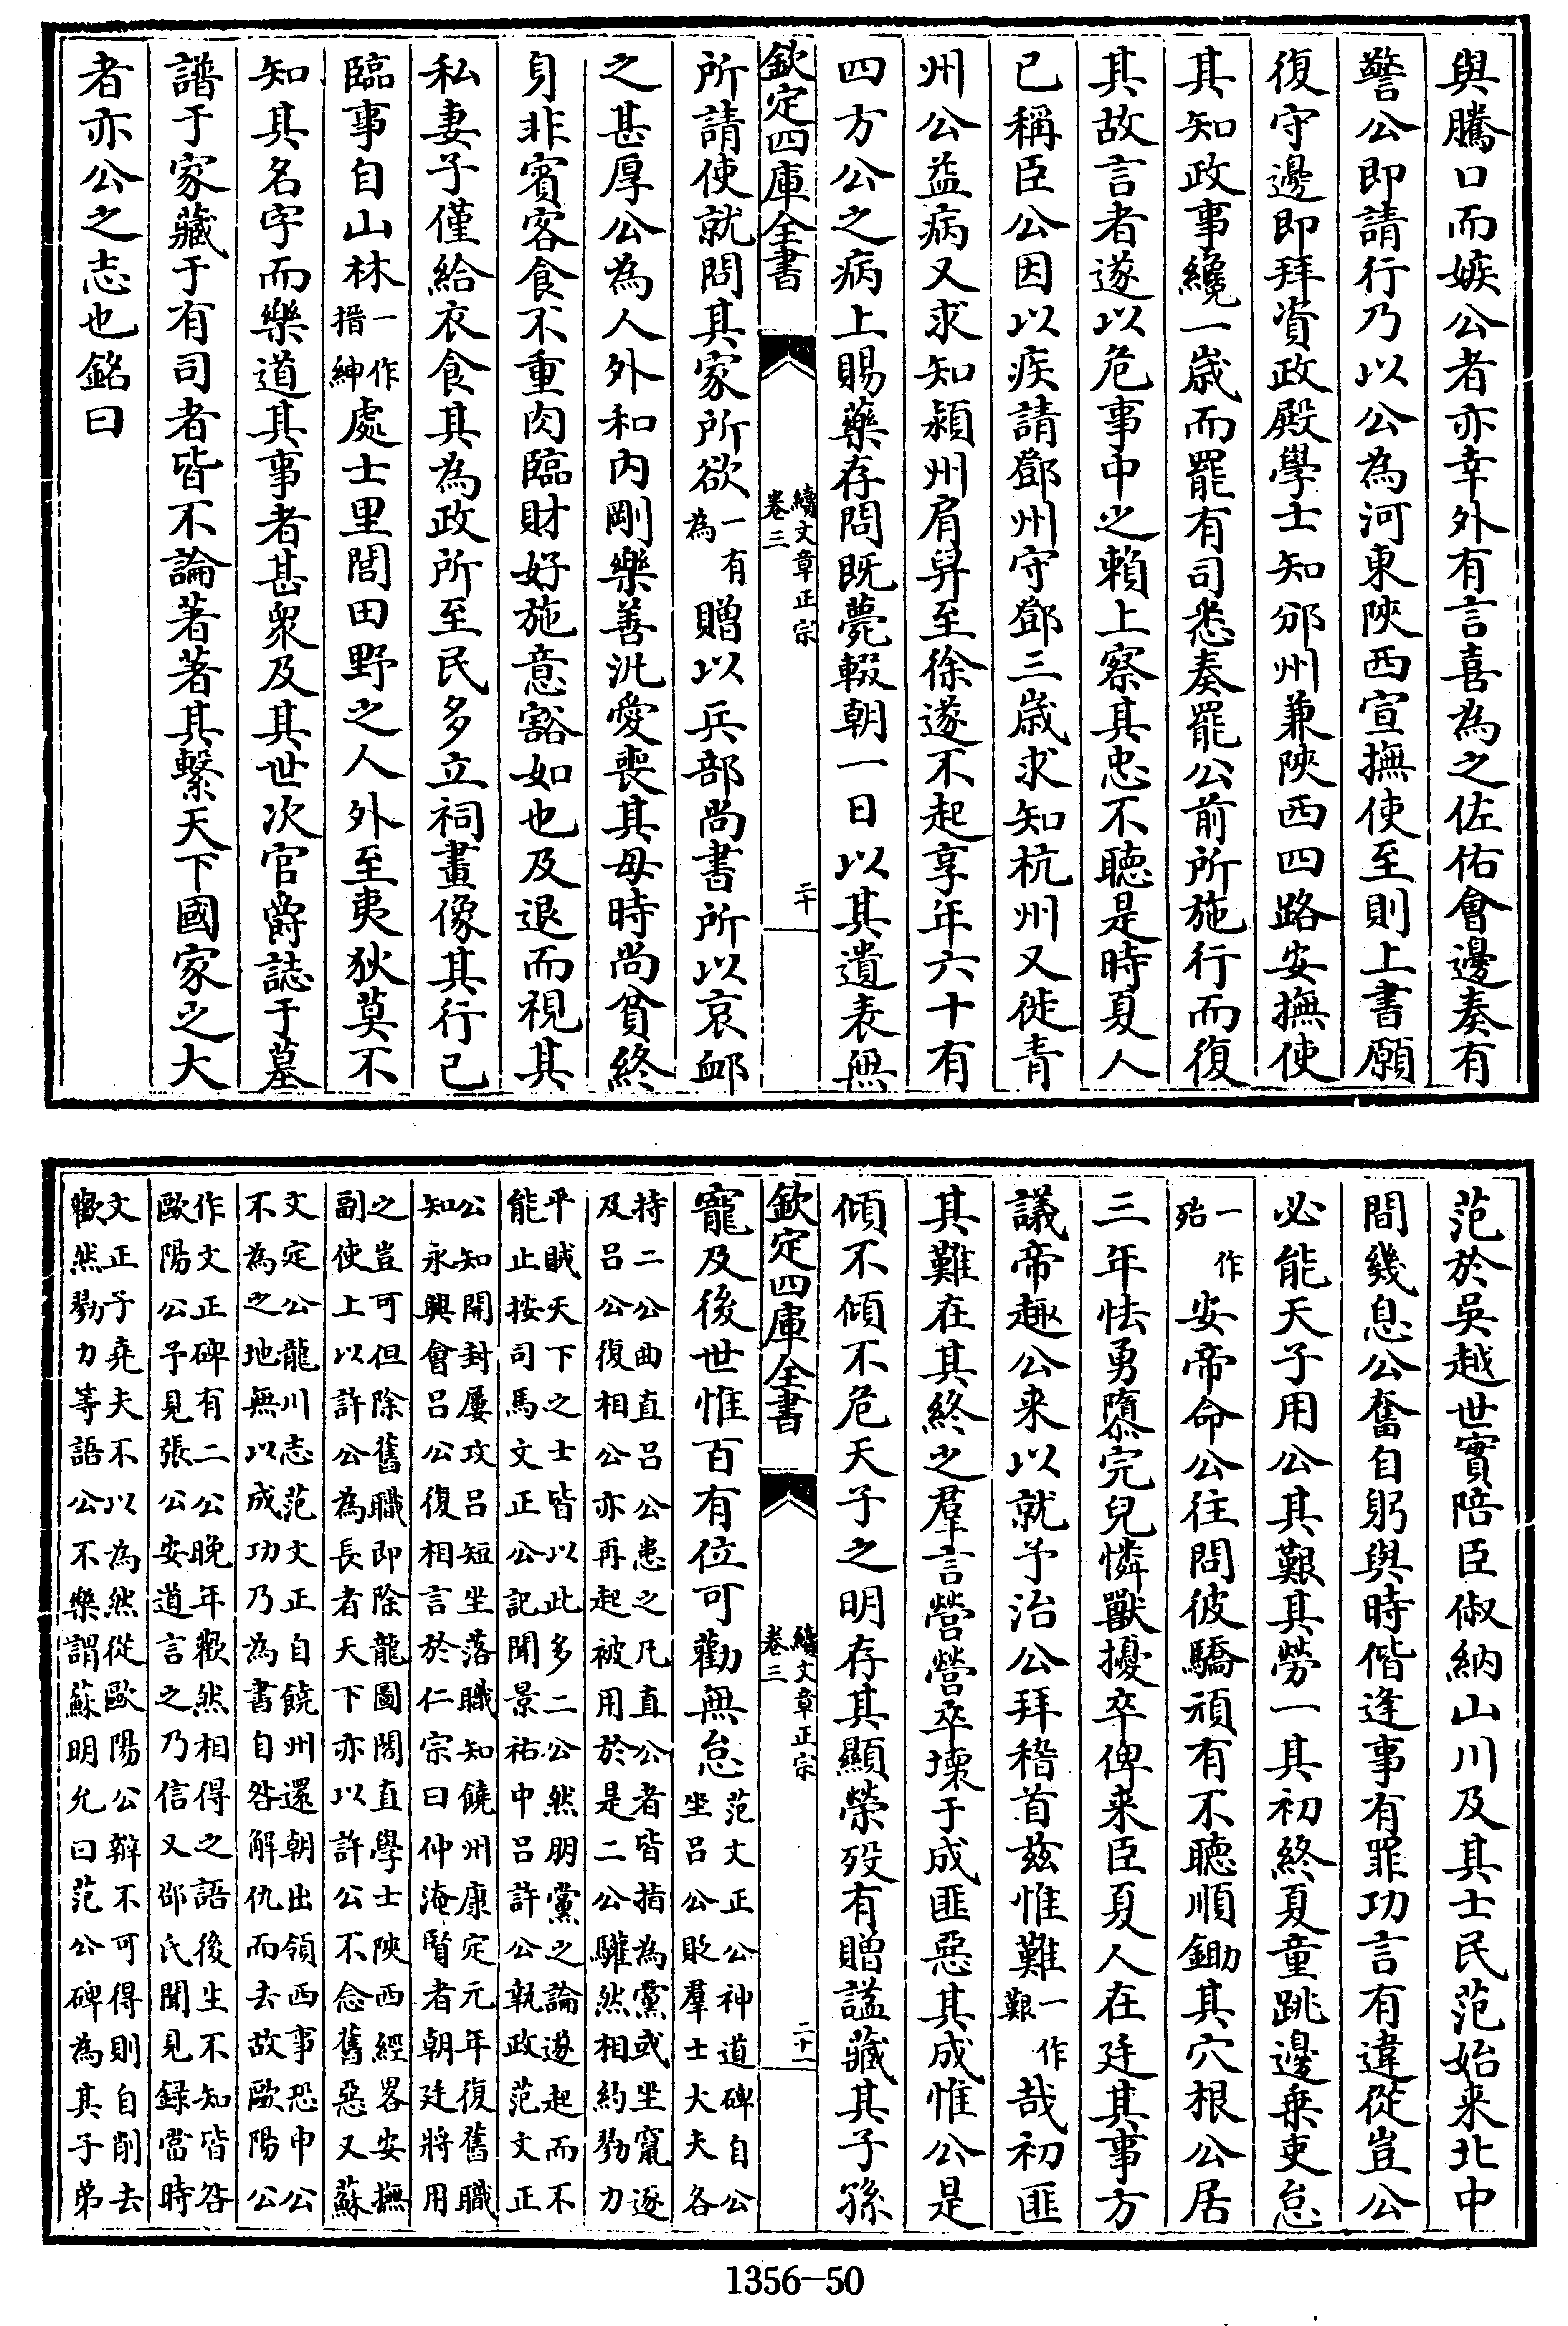 與騰口而嫉公者亦幸外有言喜為之佐佑會邊奏有
警公即請行乃以公為河東陜西宣撫使至則上書願
復守邊即拜資政殿學士知邠州兼陜西四路安撫使
其知政事纔一歲而罷有司悉奏罷公前所施行而復
其故言者遂以危事中之賴上察其忠不聽是時夏人
已稱臣公因以疾請鄧州守鄧三歲求知杭州又徙青
州公益病又求知潁州肩舁至徐遂不起享年六十有
四方公之病上賜藥存問既薨輟朝一日以其遺表無
欽定四庫全書
續文章正宗
卷三
二十
所請使就問其家所欲一有為贈以兵部尚書所以哀卹
之甚厚公為人外和內剛樂善汎愛喪其母時尚貧終
身非賓客食不重肉臨財好施意豁如也及退而視其
私妻子僅給衣食其為政所至民多立祠畫像其行己
臨事自山林一作搢紳處士里閭田野之人外至夷狄莫不
知其名字而樂道其事者甚衆及其世次官爵誌于墓
譜于家藏于有司者皆不論著著其繫天下國家之大
者亦公之志也銘曰
范於吳越世實陪臣俶納山川及其士民范始来北中
間幾息公奮自躬與時偕逢事有罪功言有違從豈公
必能天子用公其艱其勞一其初終夏童跳邊乗吏怠
一作殆安帝命公往問彼驕頑有不聽順鋤其穴根公居
三年怯勇隳完兒憐獸擾卒俾来臣夏人在廷其事方
議帝趣公来以就予治公拜稽首兹惟難一作艱哉初匪
其難在其終之羣言營營卒壞于成匪惡其成惟公是
傾不傾不危天子之明存其顯榮歿有贈諡藏其子孫
欽定四庫全書
續文章正宗
卷三
二十一
寵及後世惟百有位可勸無怠范文正公神道碑自公坐吕公貶羣士大夫各
持二公曲直吕公患之凡直公者皆指為黨或坐竄逐
及吕公復相公亦再起被用於是二公驩然相約勠力
平賊天下之士皆以此多二公然朋黨之論遂起而不
能止按司馬文正公記聞景祐中吕許公執政范文正
公知開封屢攻吕短坐落職知饒州康定元年復舊職
知永興會吕公復相言於仁宗曰仲淹賢者朝廷將用
之豈可但除舊職即除龍圖閣直學士陜西經畧安撫
副使上以許公為長者天下亦以許公不念舊惡又蘇
文定公龍川志范文正自饒州還朝出領西事恐申公
不為之地無以成功乃為書自咎解仇而去故歐陽公
作文正碑有二公晚年歡然相得之語後生不知皆咎
歐陽公予見張公安道言之乃信又邵氏聞見録當時
文正子堯夫不以為然從歐陽公辯不可得則自削去
歡然勠力等語公不樂謂蘇明允曰范公碑為其子弟
1356—50